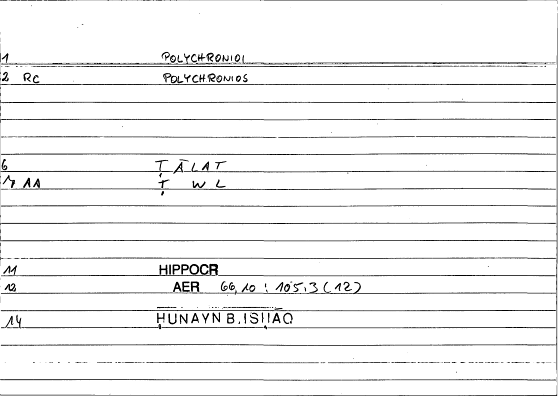 1 POLYCHRONIOI
2 RC POLYCHRONIOS
6 ṬĀLAT
7 AA Ṭ W L
11 HIPPOCR
12 AER 66,10 : 105.3 (12)
14 ḤUNAYN B. ISḤAQ